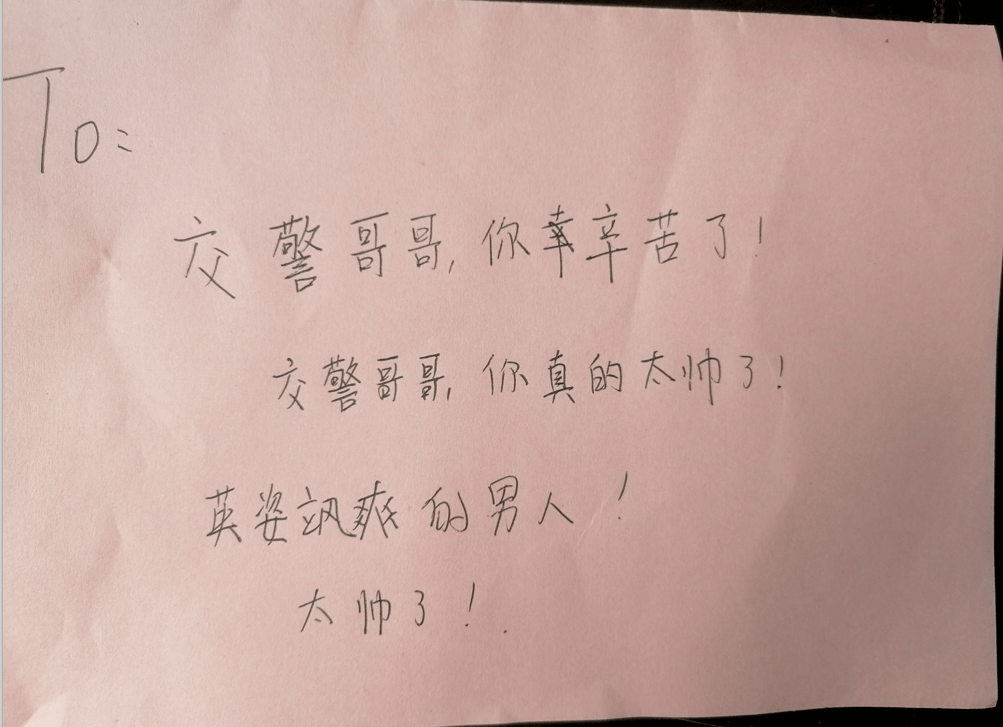 To:
交警哥哥,你辛苦了!
交警哥哥,你真的太帅了!
英姿飒爽的男人!
太帅了!